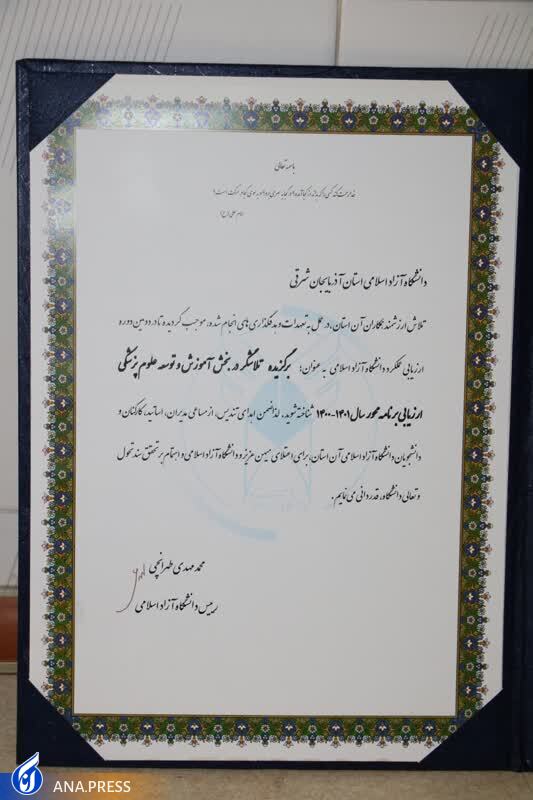 باسمه تعالی
امام علی (ع)
دانشگاه آزاد اسلامی استان آذربایجان شرقی
تلاش ارزشمند همکاران آن استان، در عمل به تعهدات و هدفگذاری‌های انجام شده، موجب گردیده تا در دومین دوره
ارزیابی عملکرد دانشگاه آزاد اسلامی به عنوان: برگزیده تلاشگر در بخش آموزش و توسعه علوم پزشکی
ارزیابی برنامه محور سال ۱۴۰۱-۱۴۰۰ شناخته شوید. لذا ضمن اهدای تندیس، از مساعی مدیران، اساتید، کارکنان و
دانشجویان دانشگاه آزاد اسلامی آن استان، برای اعتلای میهن عزیز و دانشگاه آزاد اسلامی و اهتمام بر تحقق سند تحول
و تعالی دانشگاه، قدردانی می نمایم.
محمد مهدی طهرانچی
رییس دانشگاه آزاد اسلامی
ANA.PRESS